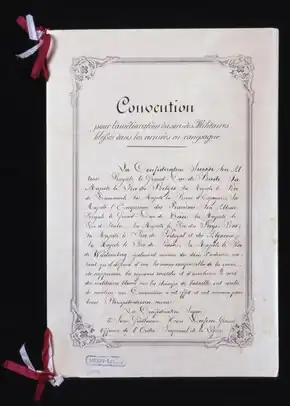 Convention
pour l'amélioration du sort des Militaires
blessés dans les armées en campagne
La Confédération Suisse, Son Al
tesse Royale le Grand Duc de Bade, Sa
Majesté le Roi des Belges, Sa Majesté le Roi
de Danemark, Sa Majesté la Reine d'Espagne, Sa
Majesté l'Empereur des Français, Son Altesse
Royale le Grand Duc de Hesse, Sa Majesté le
Roi d'Italie, Sa Majesté le Roi des Pays-Bas,
Sa Majesté le Roi de Portugal et des Algarves,
Sa Majesté le Roi de Prusse, Sa Majesté le Roi
de Wurtemberg, également animés du désir d'adoucir, au-
tant qu'il dépend d'eux, les maux inséparables de la guerre,
de supprimer les rigueurs inutiles et d'améliorer le sort
des militaires blessés sur les champs de bataille, ont résolu
de conclure une Convention à cet effet et ont nommé pour
leurs Plénipotentiaires, savoir:
La Confédération Suisse
Guillaume Henri Dufour, Grand
Officier de l'Ordre Impérial de la Légion